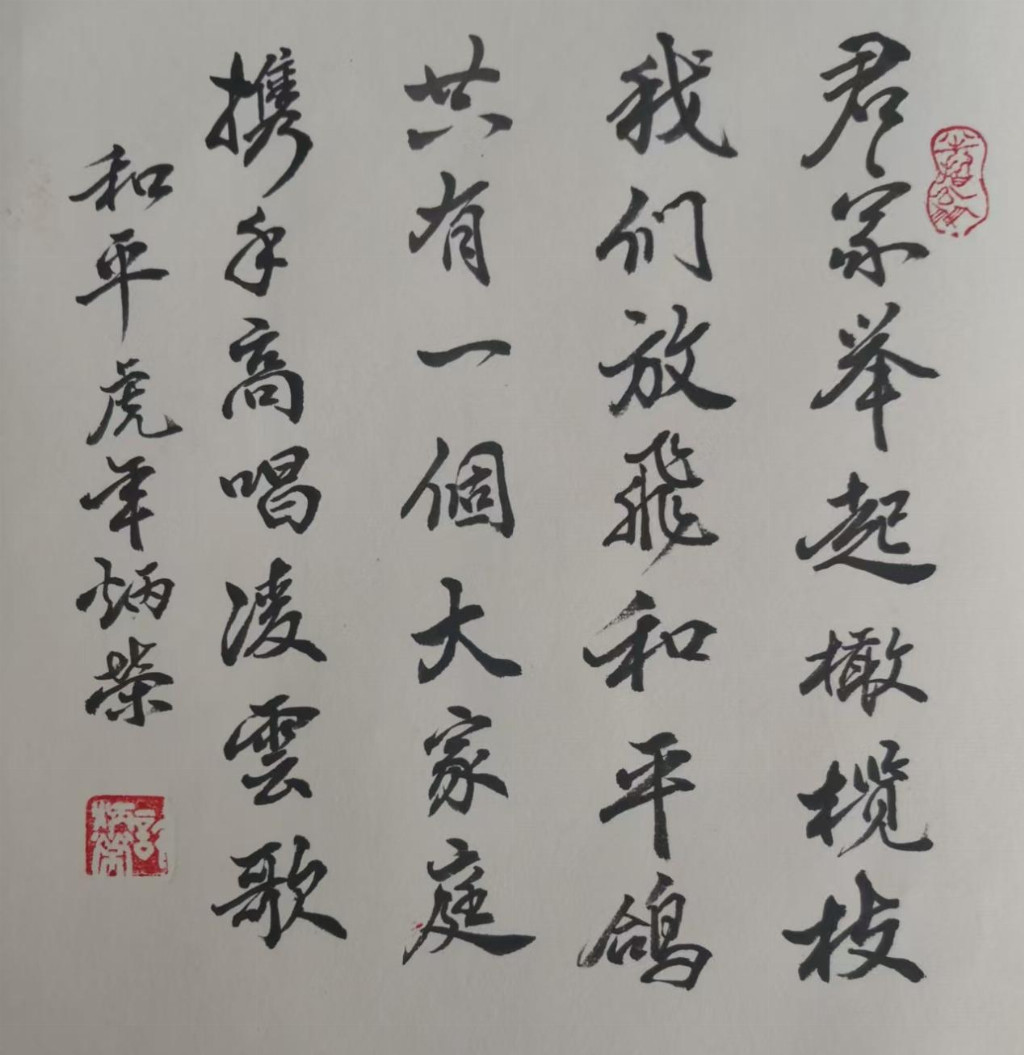 君家举起橄榄枝
我们放飛和平鸽
共有一個大家庭
携手高唱凌雲歌
和平虎年炳荣